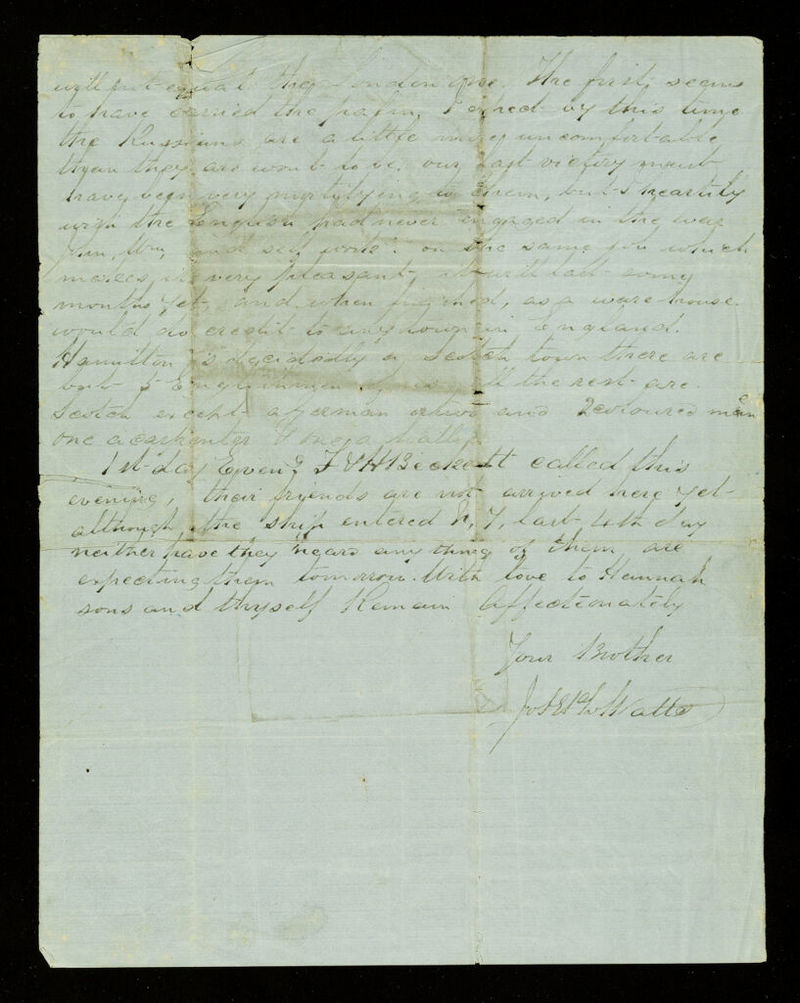 will not equal the London one. The first, seems
to have carried the palm, I expect by this time
the Russians are a little more uncomfortable
than they are wont to be. our last victory must
have been very mortifying to them, but I heartily
wish the English had never engaged in the war
and self work on the same job which
makes it very pleasant, it will last some
months yet, and when finished, as a ware house
would do credit to any town in England.
Hamilton is decidedly a Scotch town there are
but 5 Englishmen all the rest are
Scotch except a German and 2 coloured men
one a carpenter
1st day Eveng F & H Beckett called this
evening, their friends are not arrived here yet
although the ship entered N. Y. last 4th day
neither have they heard any thing of them are
expecting them tomorrow. With love to Hannah
sons and thyself Remain Affectionately
Your Brother
Watts